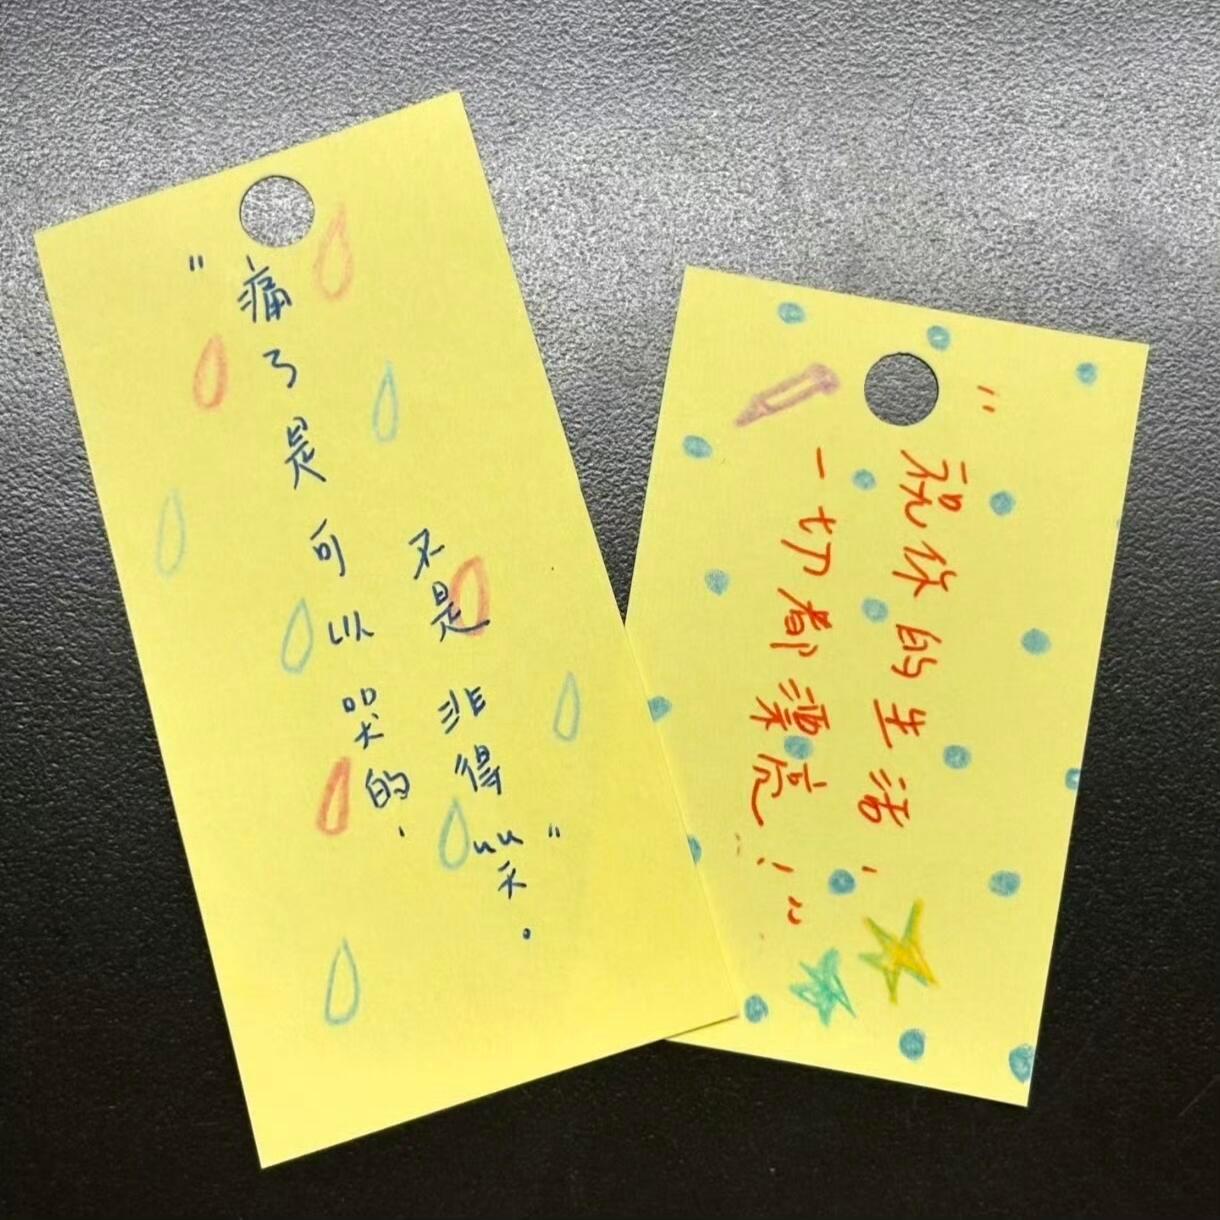 "痛了是可以哭的,
不是非得笑"。
"祝你的生活,
一切都漂亮!"